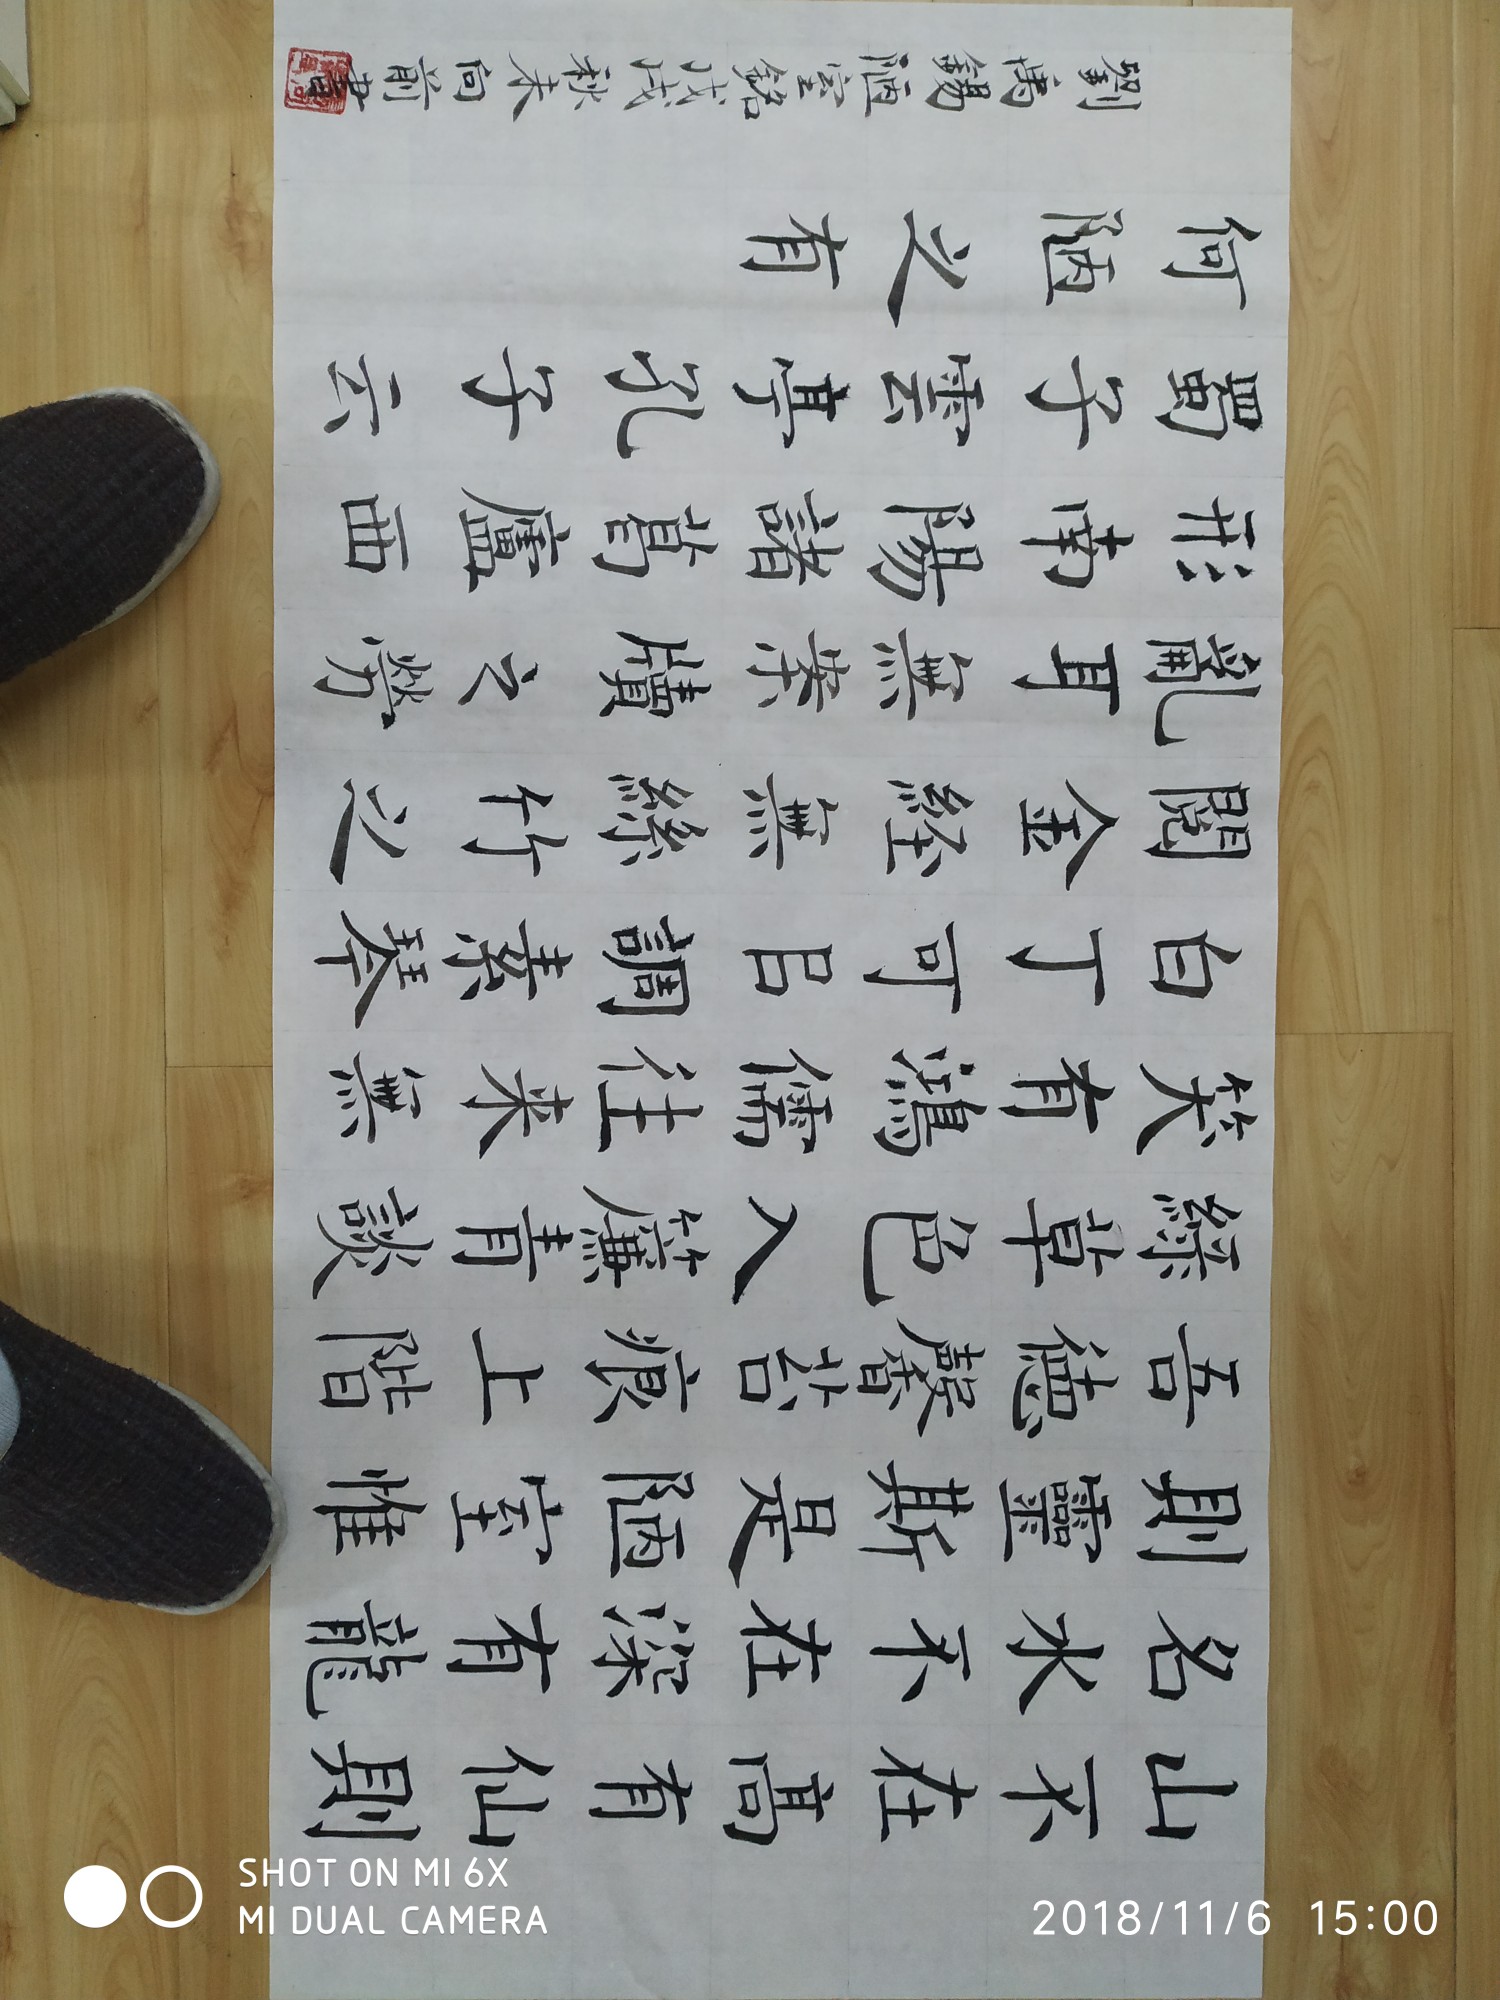 山不在高有仙則
名水不在深有龍
則靈斯是陋室惟
吾德馨苔痕上階
綠草色入簾青談
笑有鴻儒往来無
白丁可㠯調素琴
閱金経無絲竹之
亂耳無案牘之勞
形南陽諸葛廬西
蜀子雲亭孔子云
何陋之有
劉禹錫陋室銘戊戌秋末向前書
SHOT ON MI 6X
MI DUAL CAMERA
2018/11/6 15:00